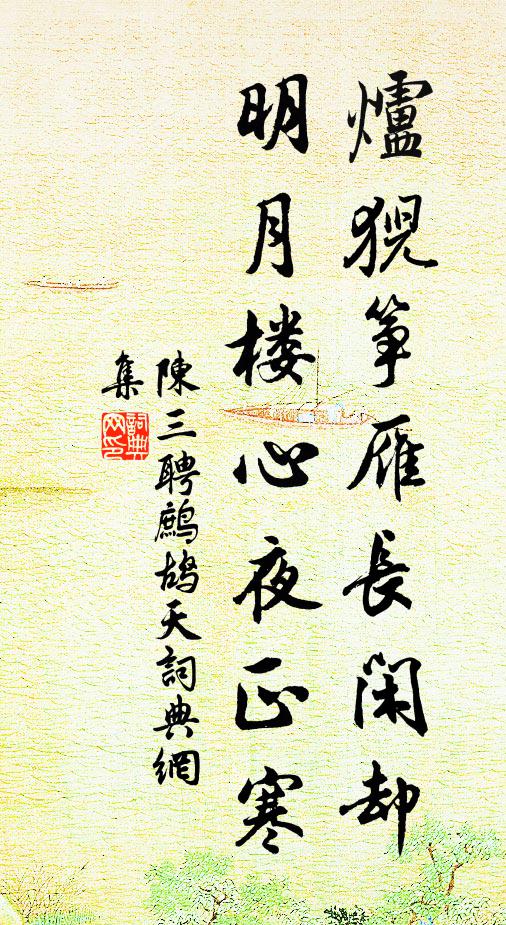 爐猊筝雁長閑却
明月楼心夜正寒
陳三聘鷓鴣天詞典網
集
詞典
网印